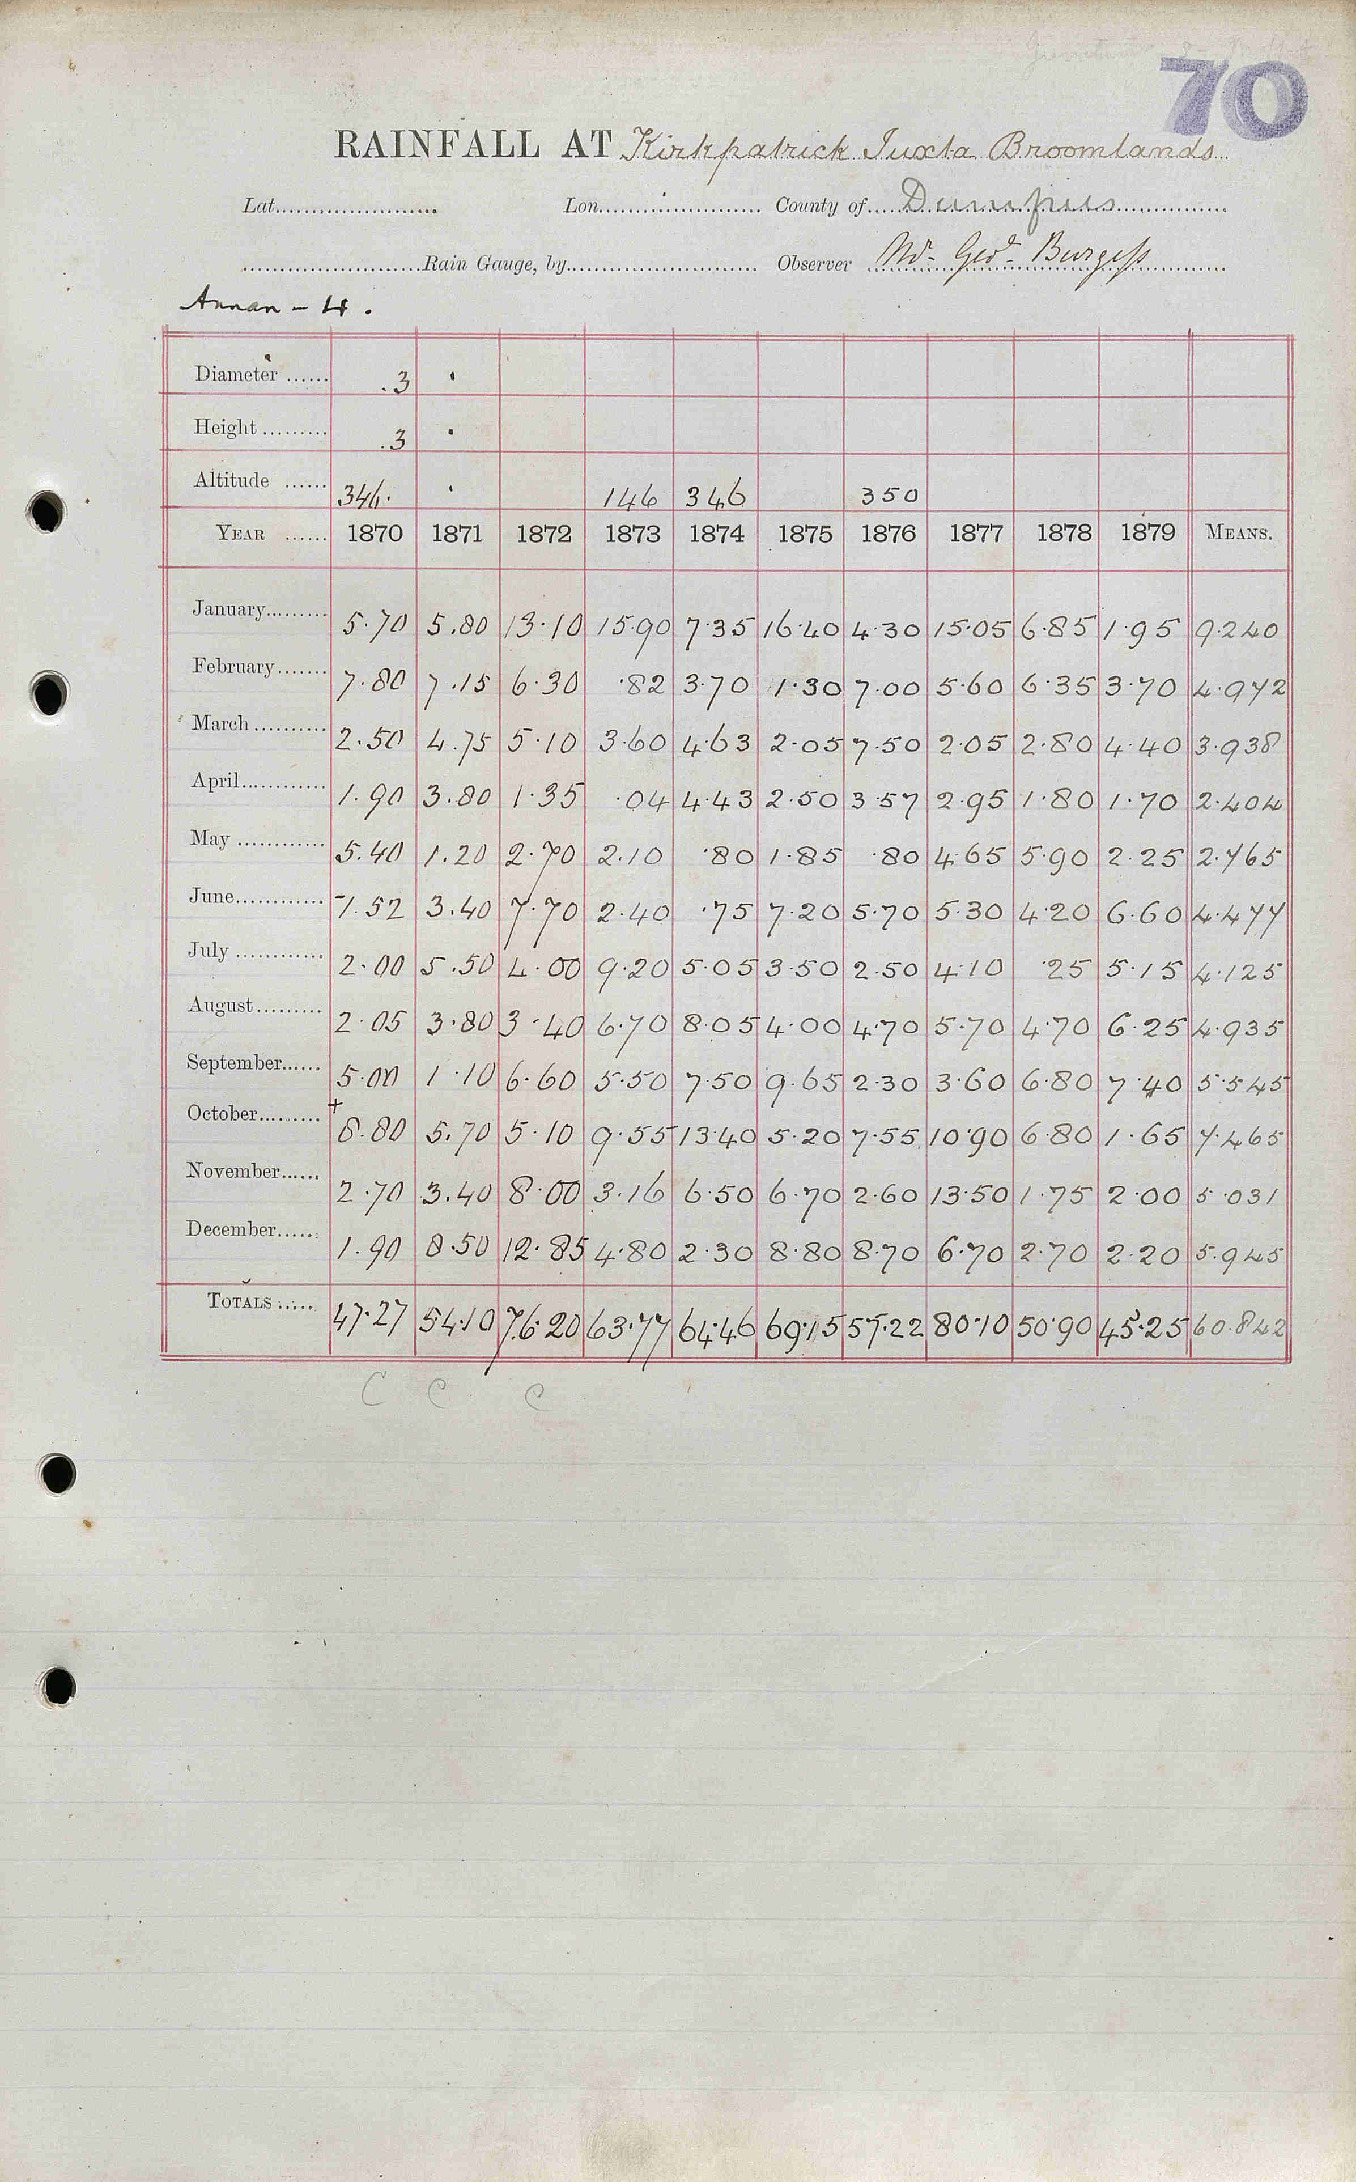 70
RAINFALL AT Kirkpatrick Juxta Broomlands
Lat. Lon. County of Dumfries
Rain Gauge, by Observer Mr. Geo. Burgess
Annan - 4.
Diameter 3 .
Height 3 .
Altitude 346. . 146 346 350
YEAR 1870 1871 1872 1873 1874 1875 1876 1877 1878 1879 MEANS.
January 5.70 5.80 13.10 15.90 7.35 16.40 4.30 15.05 6.85 1.95 9.240
February 7.80 7.15 6.30 .82 3.70 1.30 7.00 5.60 6.35 3.70 4.972
March 2.50 4.75 5.10 3.60 4.63 2.05 7.50 2.05 2.80 4.40 3.938
April 1.90 3.80 1.35 .04 4.43 2.50 3.57 2.95 1.80 1.70 2.404
May 5.40 1.20 2.70 2.10 .80 1.85 .80 4.65 5.90 2.25 2.765
June 1.52 3.40 7.70 2.40 .75 7.20 5.70 5.30 4.20 6.60 4.477
July 2.00 5.50 4.00 9.20 5.05 3.50 2.50 4.10 .25 5.15 4.125
August 2.05 3.80 3.40 6.70 8.05 4.00 4.70 5.70 4.70 6.25 4.935
September 5.00 1.10 6.60 5.50 7.50 9.65 2.30 3.60 6.80 7.40 5.545
October + 8.80 5.70 5.10 9.55 13.40 5.20 7.55 10.90 6.80 1.65 7.465
November 2.70 3.40 8.00 3.16 6.50 6.70 2.60 13.50 1.75 2.00 5.031
December 1.90 8.50 12.85 4.80 2.30 8.80 8.70 6.70 2.70 2.20 5.945
TOTALS 47.27 54.10 76.20 63.77 64.46 69.15 57.22 80.10 50.90 45.25 60.842
C C C